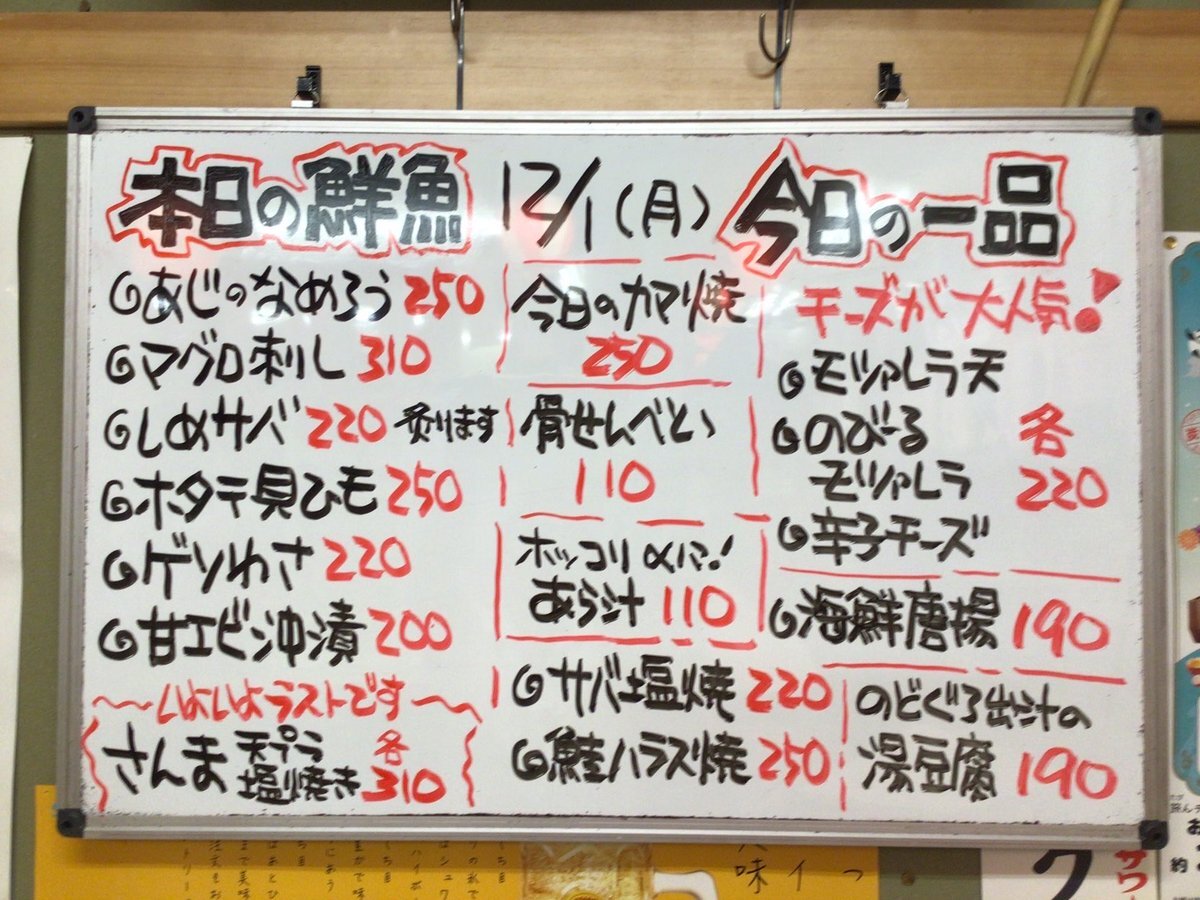 本日の鮮魚
12/1(月)
今日の一品
あじのなめろう 250
マグロ刺し 310
しめサバ 220 炙ります
ホタテ貝ひも 250
ゲソわさ 220
甘エビ沖漬 200
〜いよいよラストです〜
さんま 天プラ 塩焼き 各310
今日のカマ焼
250
骨せんべい
110
ホッコリ〆に!
あら汁 110
サバ塩焼 220
鮭ハラス焼 250
チーズが大人気!
モッツァレラ天
のびーる
モッツァレラ
辛子チーズ
各
220
海鮮唐揚 190
のどぐろ出汁の
湯豆腐 190